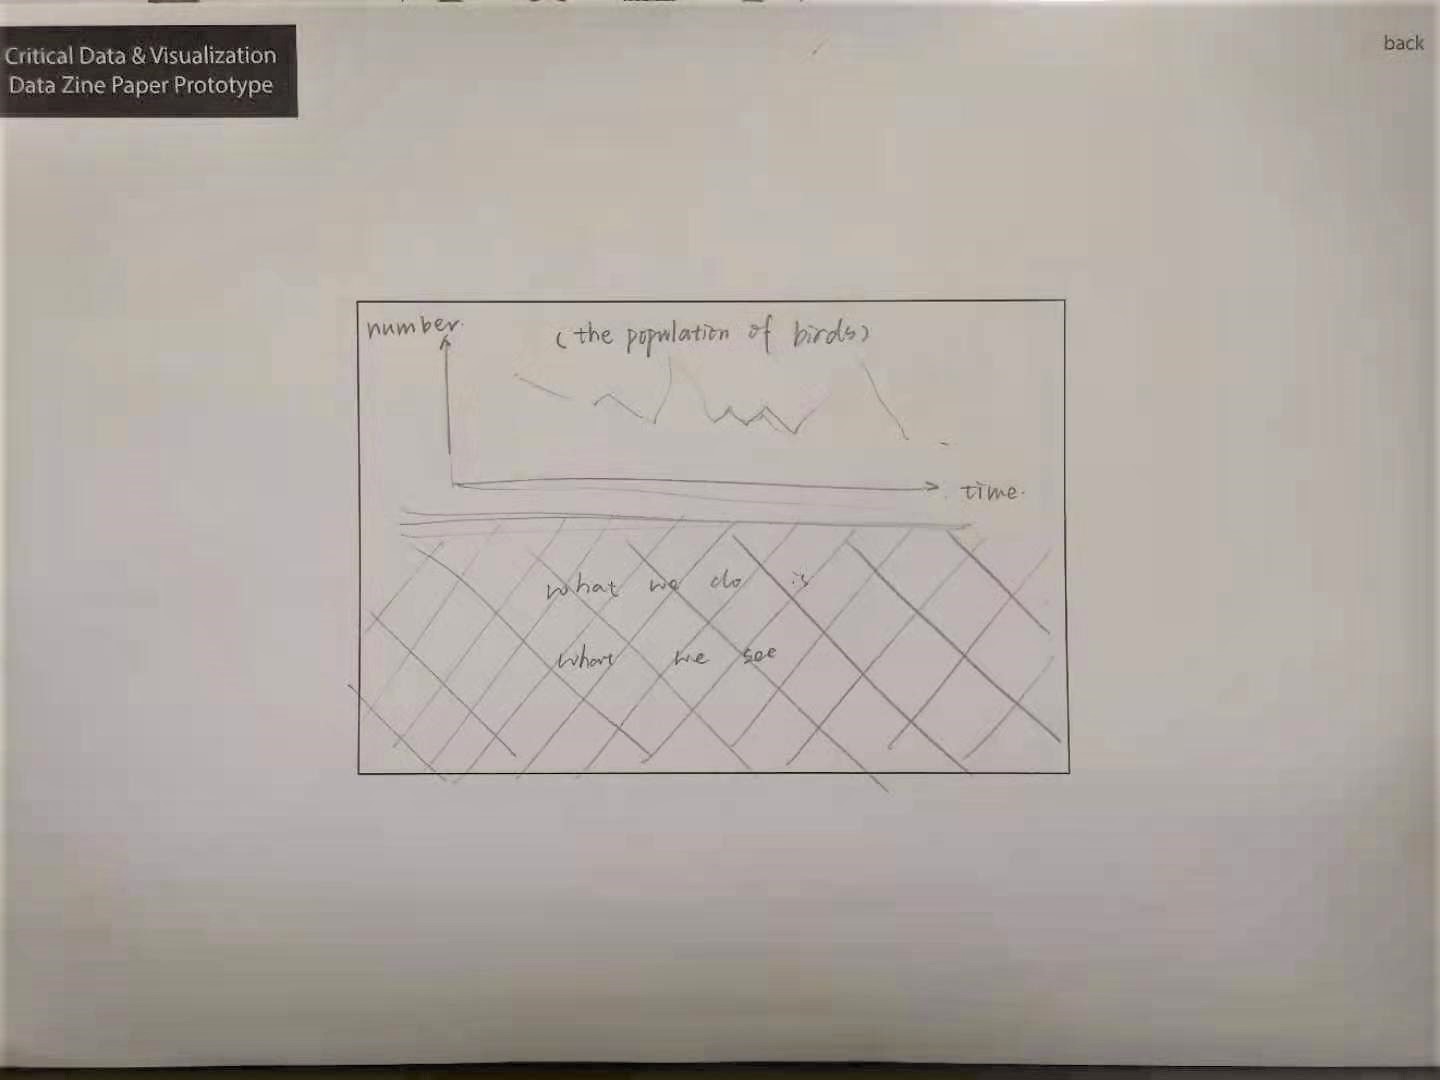 Critical Data & Visualization
Data Zine Paper Prototype
back
number.
(the population of birds)
time.
what we do is
what we see